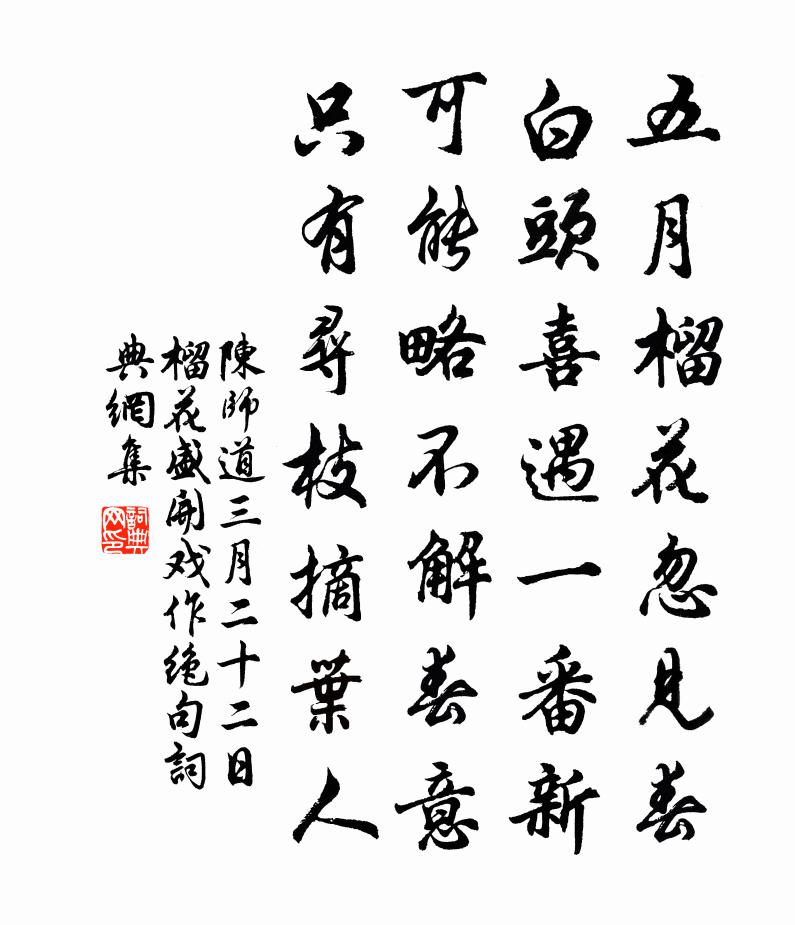 五月榴花忽見春
白頭喜遇一番新
可能略不解春意
只有尋枝摘葉人
陳師道三月二十二日
榴花盛開戏作绝句詞
典網集
詞典网印